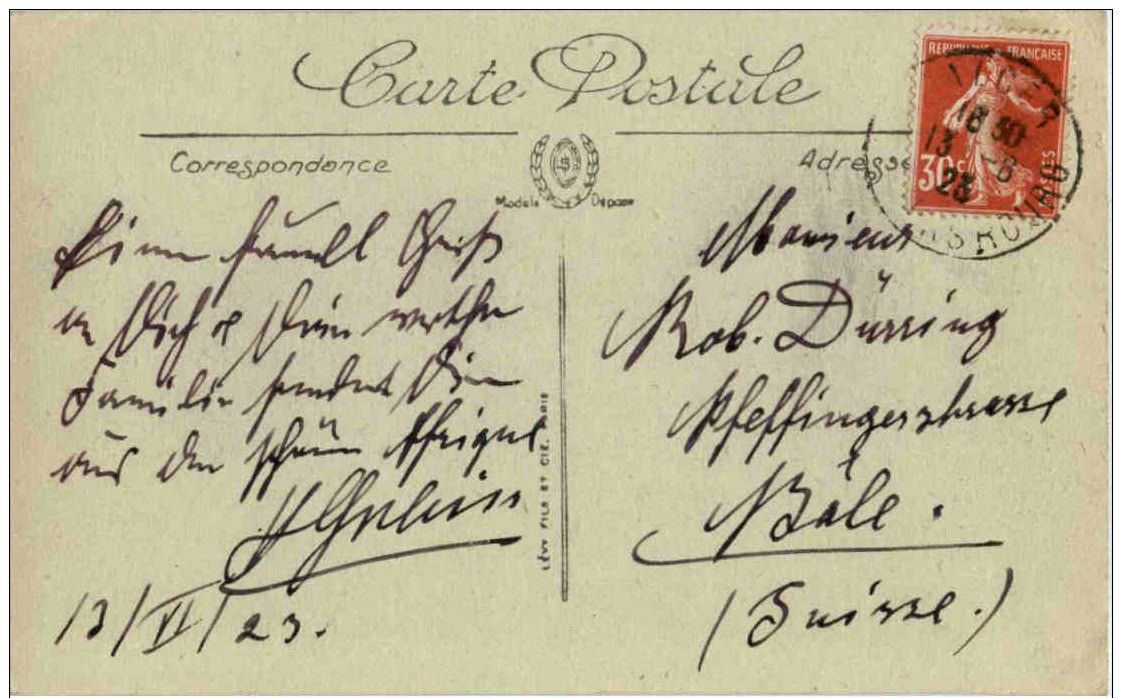 Carte Postale
Correspondance
Adresse
Modèle Déposé
RÉPUBLIQUE FRANÇAISE
30c
POSTES
ALGER
18 30
13 -6
23
Einen freundl. Gruss
an Dich & Deine werthe
Familie sendet Dir
aus der schönen Afrique
13/VI/23.
LÉVY FILS ET CIE, PARIS
Monsieur
Rob. Dürring
Pfeffingerstrasse
Bâle.
(Suisse.)